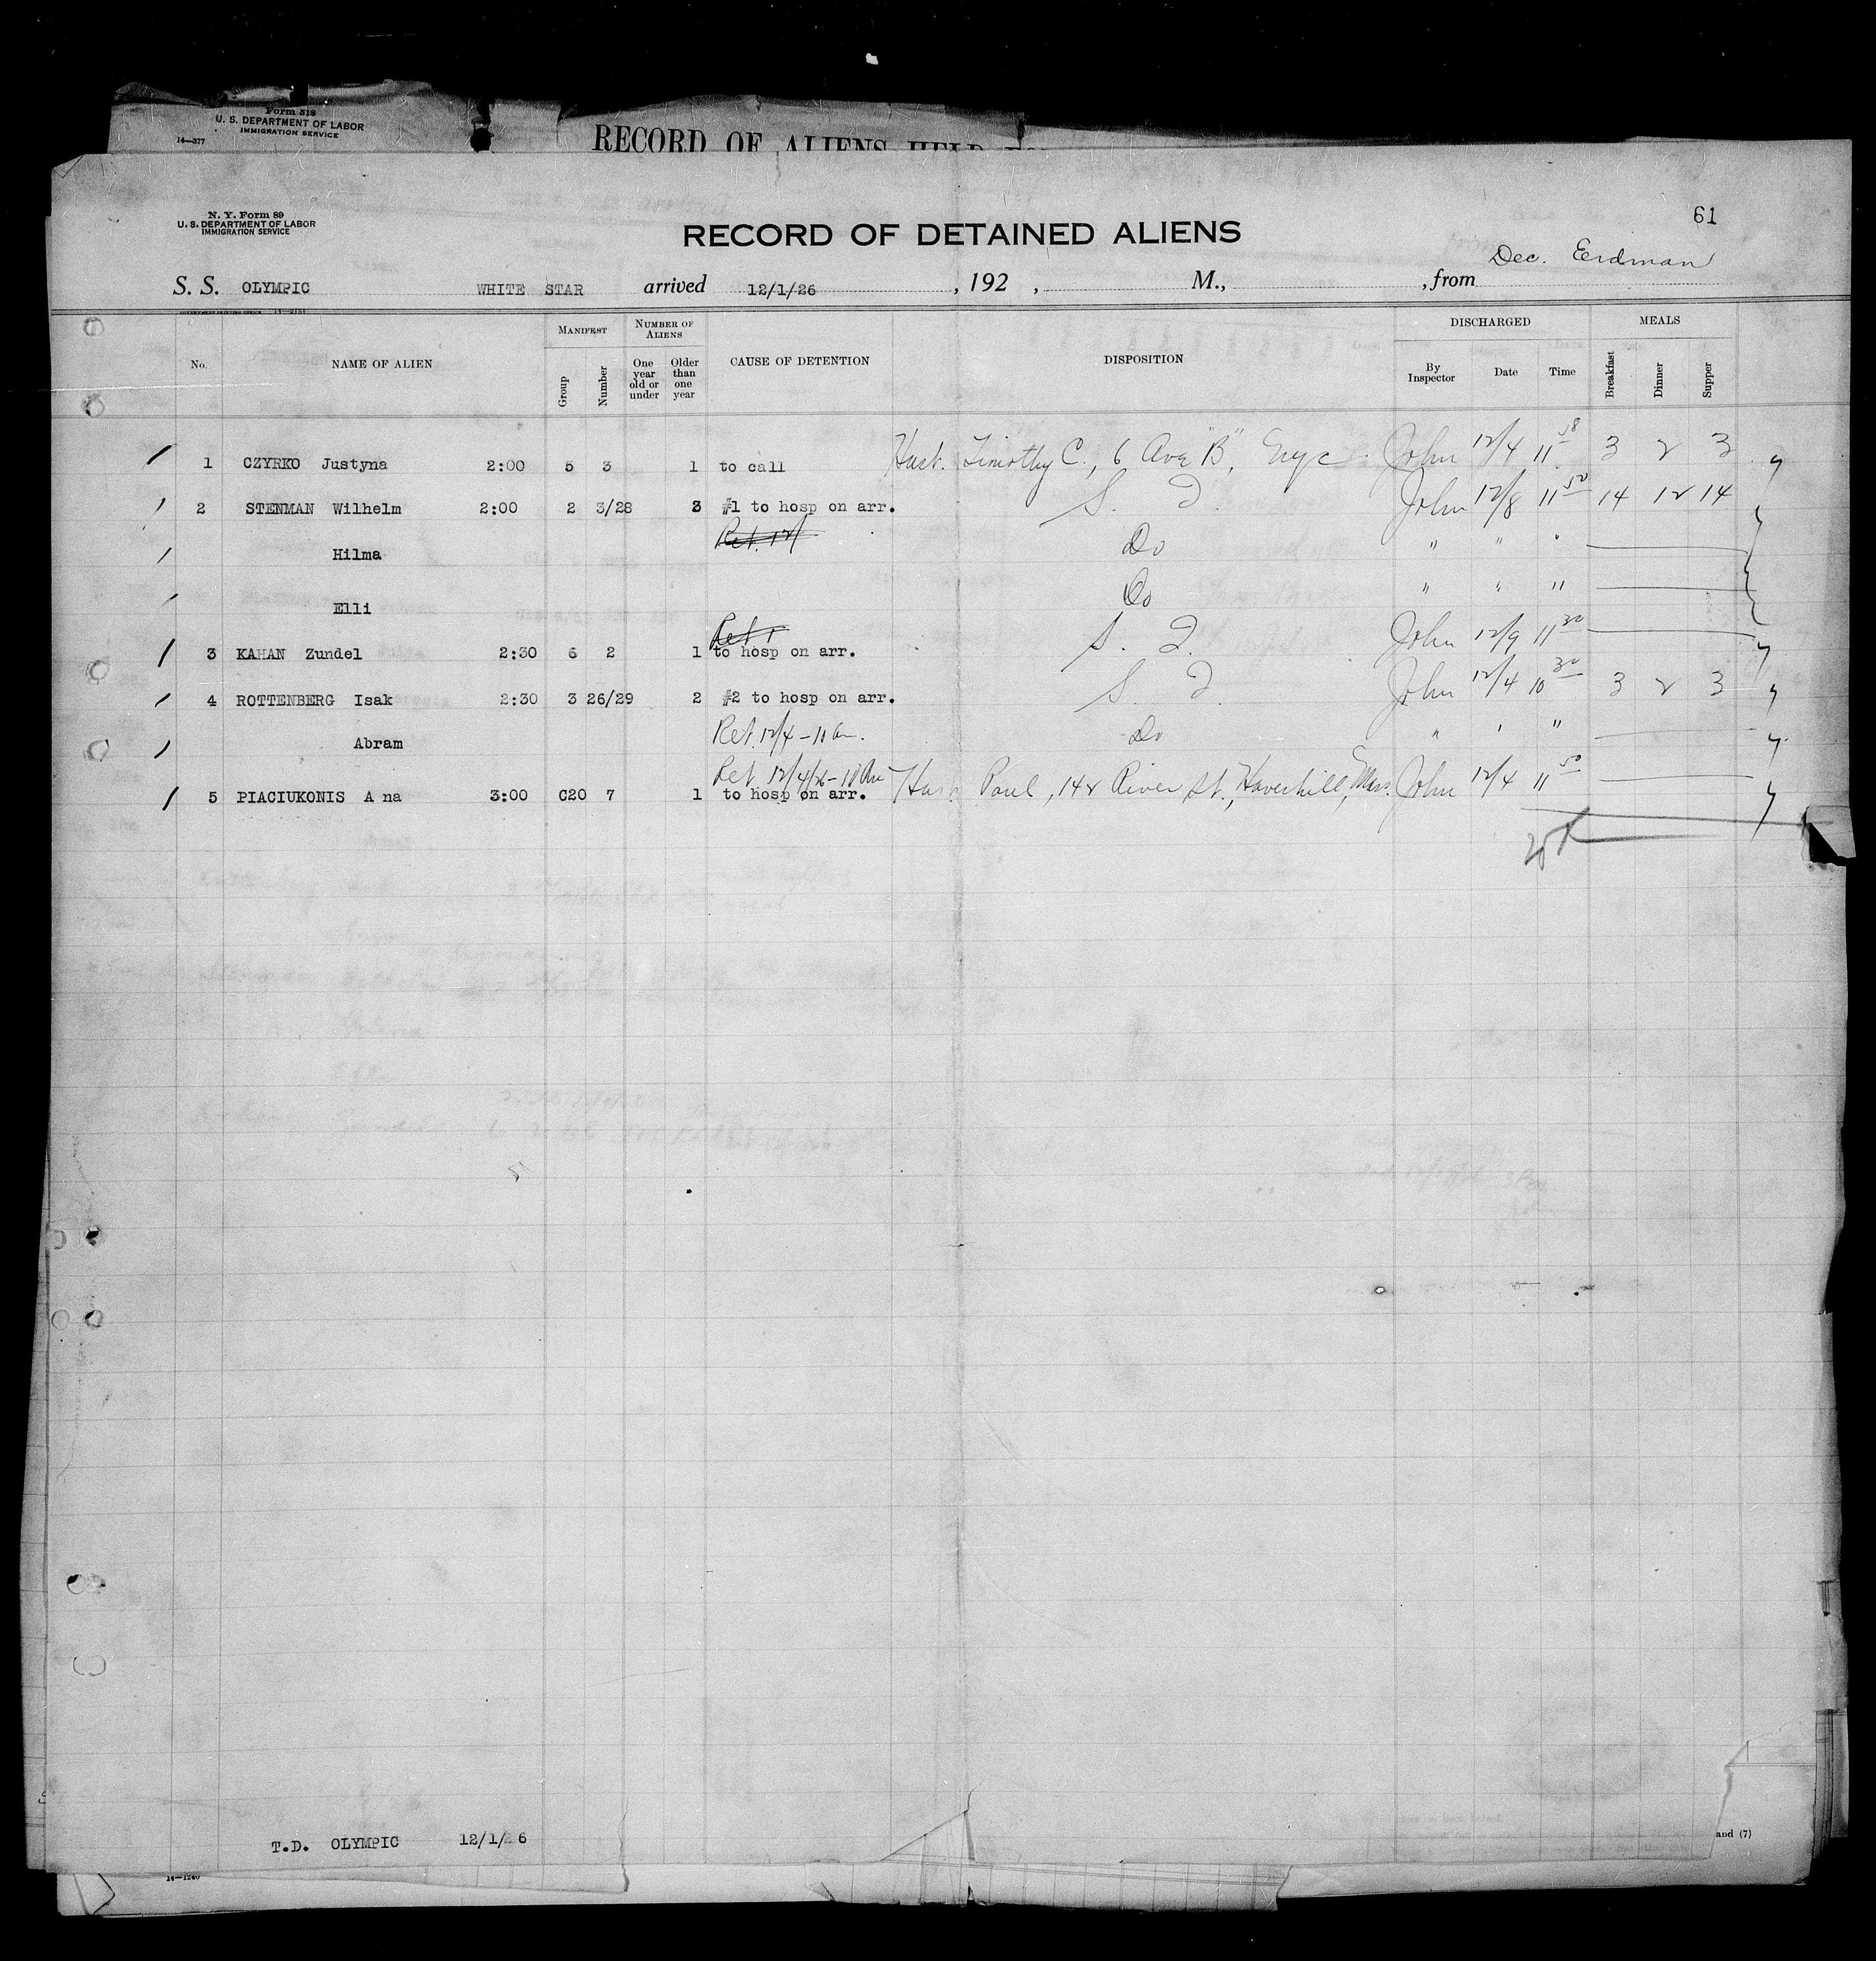 Form 518
U. S. DEPARTMENT OF LABOR
IMMIGRATION SERVICE
14—377
RECORD OF ALIENS HELD
N. Y. Form 89
U. S. DEPARTMENT OF LABOR
IMMIGRATION SERVICE
61
RECORD OF DETAINED ALIENS
Dec. Erdman
S. S. OLYMPIC WHITE STAR arrived 12/1/26 , 192 , M., , from
No. NAME OF ALIEN MANIFEST Group Number NUMBER OF ALIENS One year old or under Older than one year CAUSE OF DETENTION DISPOSITION DISCHARGED By Inspector Date Time MEALS Breakfast Dinner Supper
1 CZYRKO Justyna 2:00 5 3 1 to call Husb. Timothy C., 6 Ave "B", nyc John 12/4 11 58 3 2 3
2 STENMAN Wilhelm 2:00 2 3/28 3 #1 to hosp on arr. S. I. John 12/8 11 50 14 12 14
Ret. 12/
Hilma Do " " "
Elli Do " " "
Ret
3 KAHAN Zundel 2:30 6 2 1 to hosp on arr. S. I. John 12/9 11 30
4 ROTTENBERG Isak 2:30 3 26/29 2 #2 to hosp on arr. S. I. John 12/4 10 30 3 2 3
Abram Ret. 12/4 – 10 am. Do " " "
Ret. 12/4/26 – 10 Am
5 PIACIUKONIS A na 3:00 C20 7 1 to hosp on arr. Hus. Paul, 142 River St., Haverhill, Mass. John 12/4 11 50
T.D. OLYMPIC 12/1/26
and (7)
14—1240